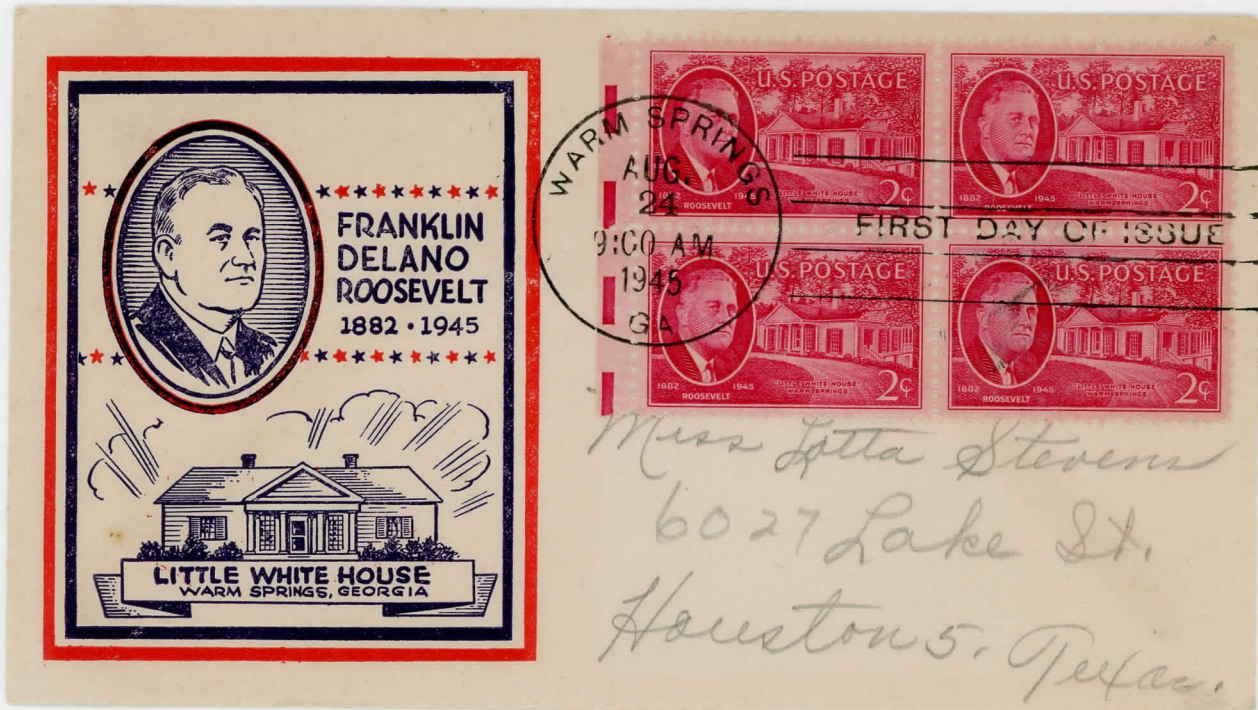 FRANKLIN
DELANO
ROOSEVELT
1882 • 1945
LITTLE WHITE HOUSE
WARM SPRINGS, GEORGIA
WARM SPRINGS
AUG.
24
9:00 AM
1945
GA
FIRST DAY OF ISSUE
U.S. POSTAGE
1882 1945
ROOSEVELT
"LITTLE WHITE HOUSE"
WARM SPRINGS
2¢
U.S. POSTAGE
1882 1945
ROOSEVELT
"LITTLE WHITE HOUSE"
WARM SPRINGS
2¢
U.S. POSTAGE
1882 1945
ROOSEVELT
"LITTLE WHITE HOUSE"
WARM SPRINGS
2¢
U.S. POSTAGE
1882 1945
ROOSEVELT
"LITTLE WHITE HOUSE"
WARM SPRINGS
2¢
Miss Lotta Stevens
6027 Lake St.
Houston 5, Texas.